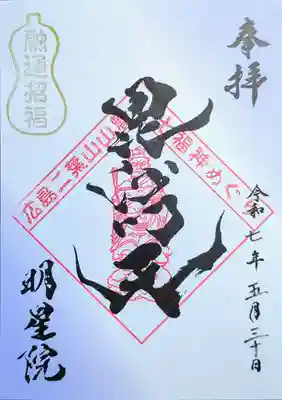 奉拝
令和七年五月三十日
毘沙門天
広島二葉山山麓七福神めぐり
融通招福
明星院